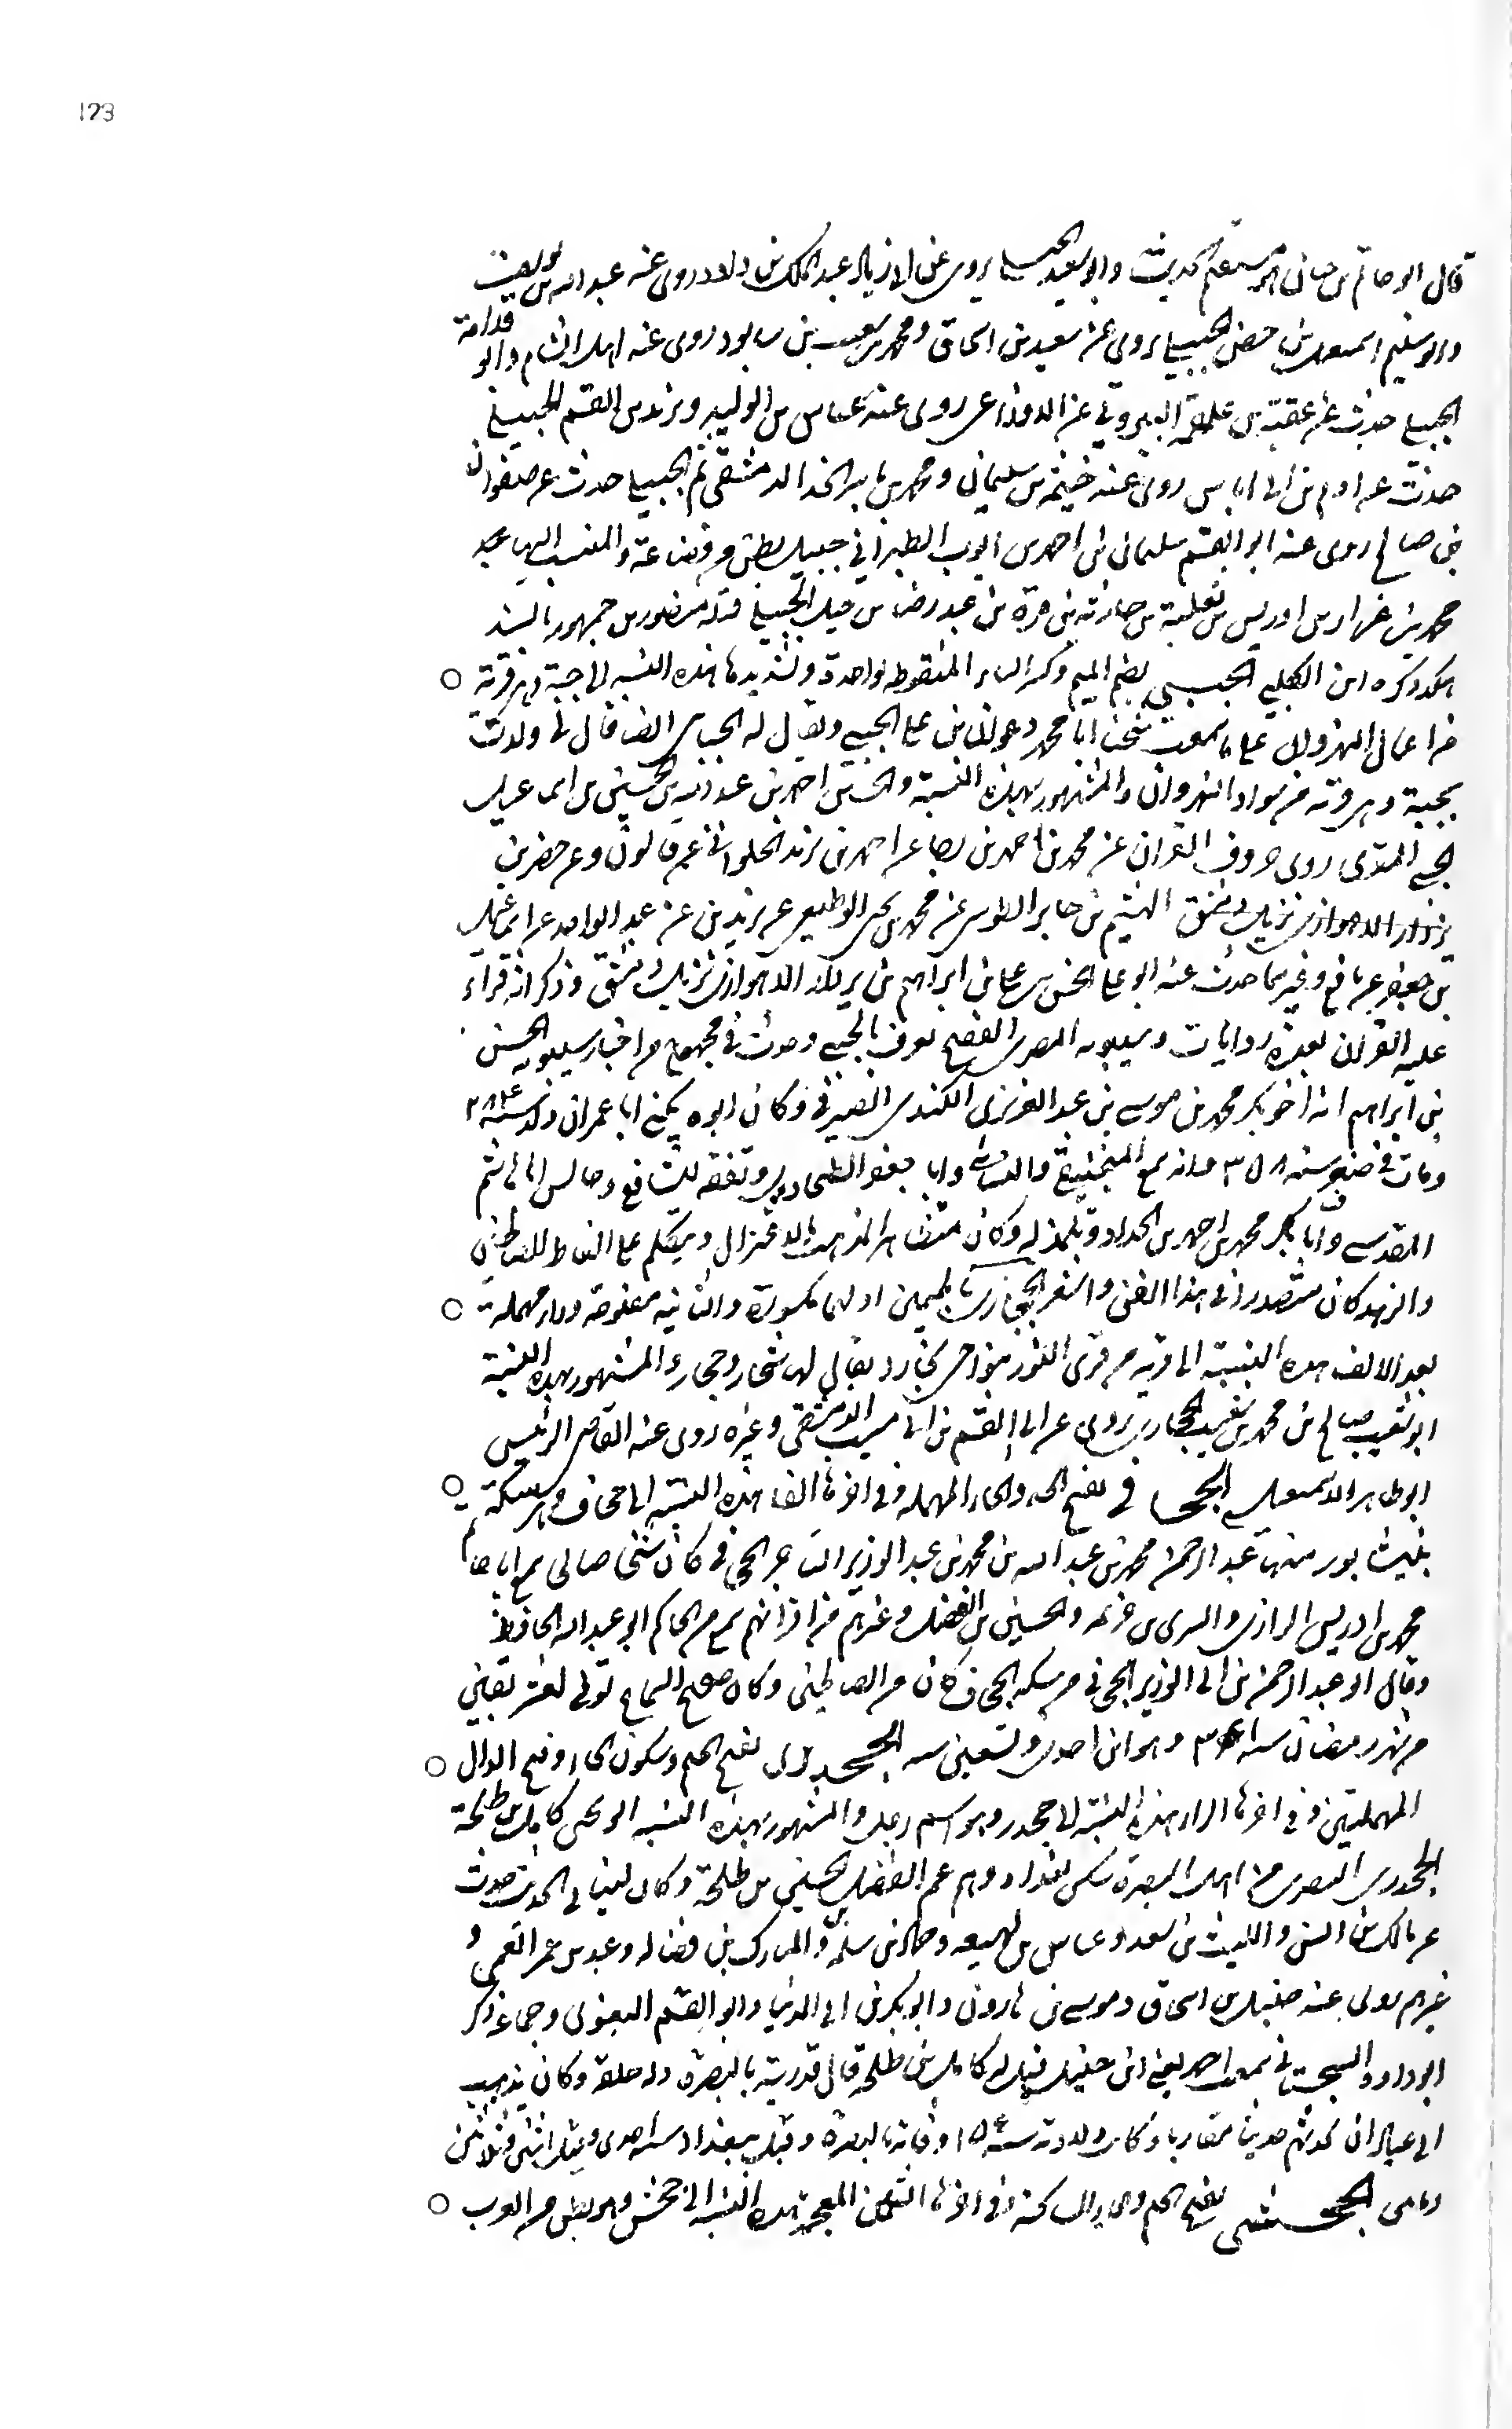 123
قال ابو حاتم بن حبان مستقيم الحديث وابو سعيد الجبيلي يروى عن ابى زياد عبد الملك بن داود روى عنه عبد الله بن يوسف
وابو سليم اسمعيل بن حصن الجبيلي يروى عن سعيد بن اسحاق ومحمد بن شعيب بن سابور روى عنه اهل الشام وابو قدامة
الجبيلي حدث عن عقبة بن علقمة البيروتي عن الاوزاعى روى عنه عباس بن الوليد ويزيد بن القسم الجبيلي
حدث عن ادم بن ابى اياس روى عنه خيثمة بن سليمان ومحمد بن ياسر الحذا الدمشقى ثم الجبيلي حدث عن صفوان
بن صالح روى عنه ابو القسم سليمان بن احمد بن ايوب الطبرانى جبيل بطن من قضاعة والمنتسب اليها
محمد بن عزار بن اوس بن ثعلبة بن حارثة بن مرة بن عبد رضا بن جبيل الجبيلي قتله منصور بن جمهور بالسند
هكذا ذكره ابن الكلبي الجبي بضم الميم وكسر الباء المنقوطة بواحدة وتشديدها هذه النسبة الى جبة وهى قرية
من اعمال النهروان على ما سمعت شيخنا ابا محمد دعوان بن على الجبي ويقال له الجبائى ايضا قال لى ولدت
بجبة وهى قرية من سواد النهروان والمشهور بهذه النسبة والحسن احمد بن عبد الله بن الحسين بن اسماعيل
الجبي المقرى روى حروف القران عن محمد بن احمد بن رجا عن احمد بن يزيد الحلوانى عن قالون وعن خضر بن
الهيثم بن جابر الطوسى عن محمد بن يحيى القطيعى عن يزيد بن عبد الواحد عن اسمعيل
بن جعفر عن نافع وغيرهما حدث عنه ابو على الحسن بن على بن ابراهيم بن يزداد الاهوازى نزيل دمشق وذكر انه قراء
عليه القران بعدة روايات وسيبويه المصرى الفصيح يعرف بالجبي وحدث فى مجموع من اخبار سيبويه الحسن
بن ابراهيم انه ابو بكر محمد بن موسى بن عبد العزيز الكندى الصيرفى وكان ابوه يكنى ابا عمران ولد سنة ٢٨٤
ومات فى صفر سنة ٣٥٨ وانه سمع المنجنيقى والنسائى وابا جعفر الطحاوى وتفقه للشافعى وجالس ابا هاشم
المقدسى وابا بكر محمد بن احمد بن الحداد وتلمذ له وكان متظاهرا بمذهب الاعتزال ويتكلم على الفاظ الصالحين
والزهد كان متصدرا فى هذا الفن الججارى بالجيمين اولهما مكسورة والثانية مفتوحة وراء مهملة
بعد الالف هذه النسبة الى قرية من قرى النور بنواحى بخارا ويقال لها شجار وججار والمشهور بهذه النسبة
ابو شعيب صالح بن محمد بن شعيب الججارى يروى عن ابى القسم بن ابى الدمشقى وغيره روى عنه القاضى الرئيس
ابو طاهر الاسمعيلى الجحافى بفتح الجيم والحاء المهملة وفى اخرها الفا هذه النسبة الى جحاف وهى سكة
بنيسابور منها عبد الرحمن محمد بن عبد الله بن محمد بن عبد الوزير التاجر الجحافى كان شيخا صالحا سمع ابا حاتم
محمد بن ادريس الرازى والسرى بن خزيمة والحسين بن الفضل وغيرهم من اقرانهم سمع منه الحاكم ابو عبد الله الحافظ
وقال ابو عبد الرحمن بن ابى الوزير الجحافى من سكة الجحاف كان من الصالحين وكان صحيح السماع توفى لعشر بقين
من شهر رمضان سنة ٣٤١ وهو ابن احدى وتسعين سنة الجحدرى بفتح الجيم وسكون الحاء وفتح الدال
المهملتين وفى اخرها الراء هذه النسبة الى جحدر وهو اسم رجل والمشهور بهذه النسبة ابو يحيى كامل بن طلحة
الجحدرى البصرى من اهل البصرة سكن بغداد وهو عم ابى الفضيل الحسين بن طلحة وكان لينا فى الحديث حدث
عن مالك بن انس والليث بن سعد وعباس بن لهيعة وحماد بن سلمة والمبارك بن فضالة وعبد بن عمر العمى و
غيرهم روى عنه حنبل بن اسحاق وموسى بن هارون وابو بكر بن ابى الدنيا وابو القسم البغوى وجماعة ذكر
ابو داود السجستانى سمعت احمد يعنى ابن حنبل قيل له كامل بن طلحة قال قد رايته بالبصرة وله حلقة وكان يذهب
الى عبادان يحدثهم حديثا مقاربا وكان ولادته سنة ١٤٥ وفاته بالبصرة وقيل ببغداد سنة احدى وقيل اثنتى وثلاثين
وماىتى الجحشى بفتح الجيم والحاء الساكنة وفى اخرها الشين المعجمة هذه النسبة الى جحش وهو بطن من العرب